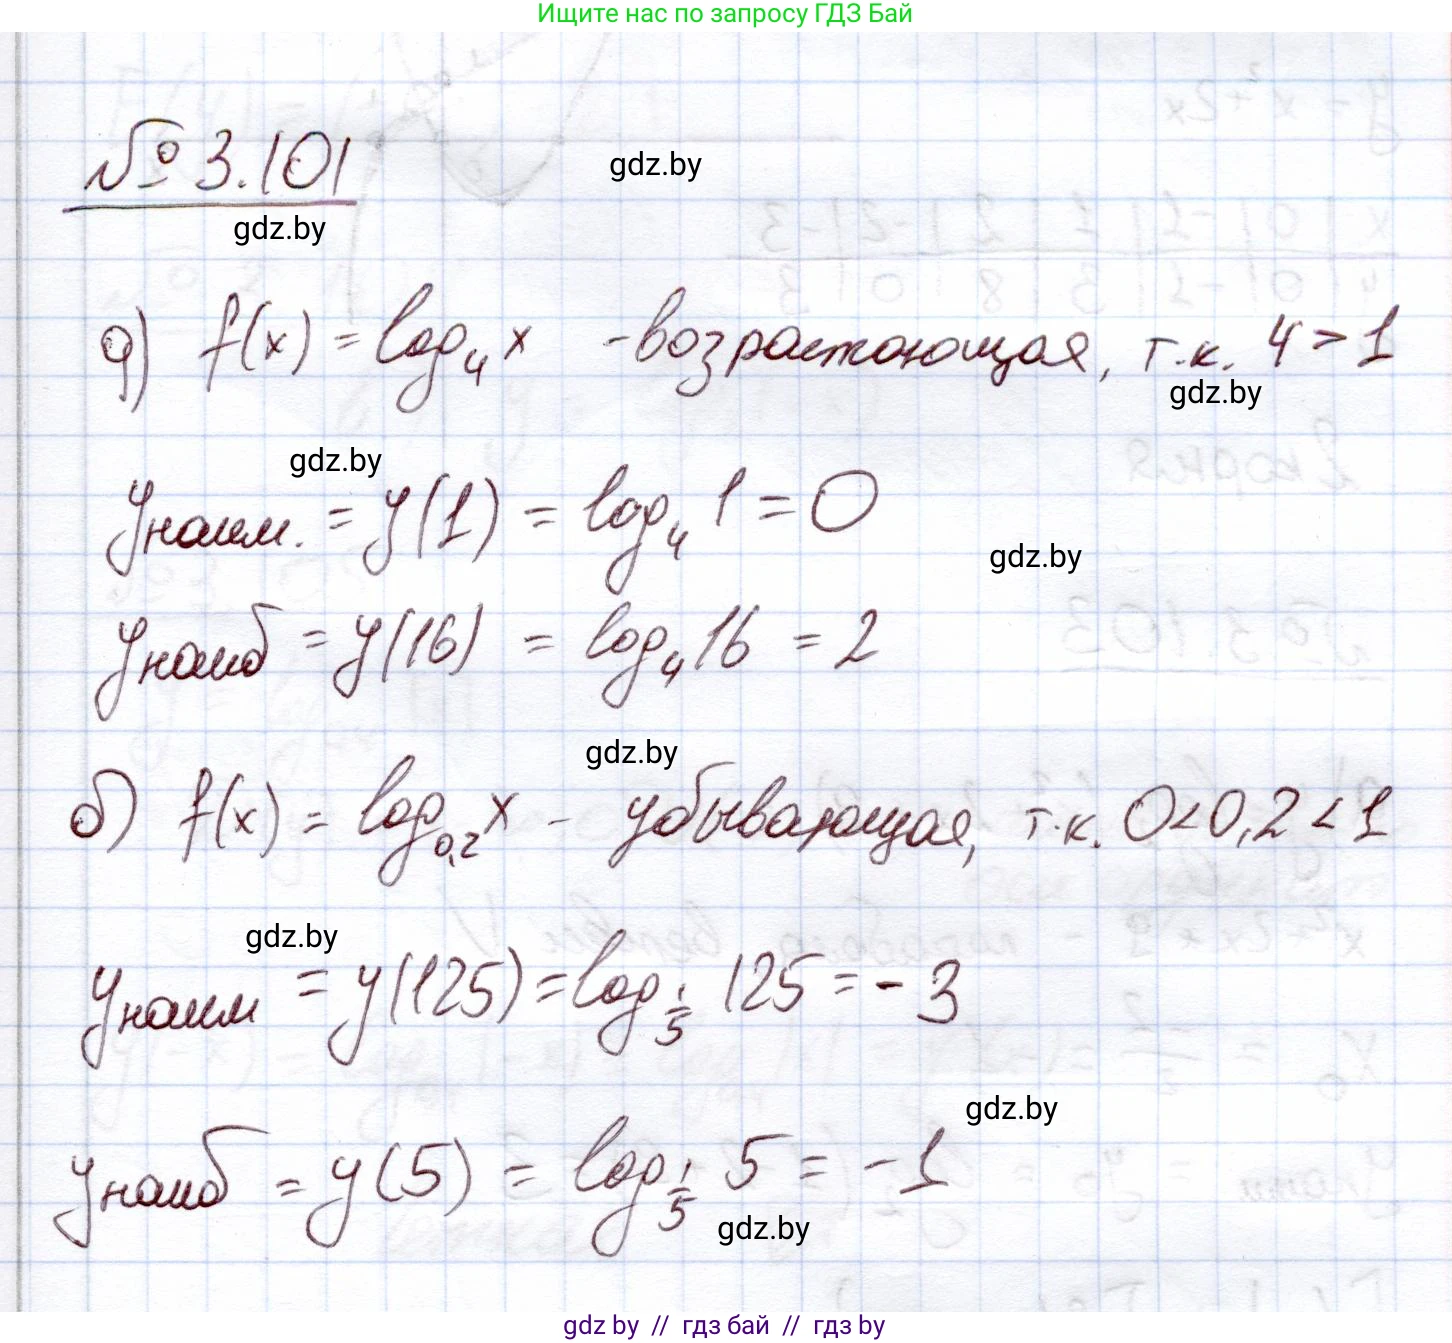 Ищите нас по запросу ГДЗ Бай
№ 3.101
gdz.by
gdz.by
а) f(x) = log₄ x - возрастающая, т.к. 4 > 1
gdz.by
gdz.by
yнаим. = y(1) = log₄ 1 = 0
gdz.by
yнаиб = y(16) = log₄ 16 = 2
gdz.by
б) f(x) = log₀,₂ x - убывающая, т.к. 0 < 0,2 < 1
gdz.by
yнаим = y(125) = log_{1/5} 125 = -3
gdz.by
yнаиб = y(5) = log_{1/5} 5 = -1
gdz.by
gdz by // гдз бай // гдз by